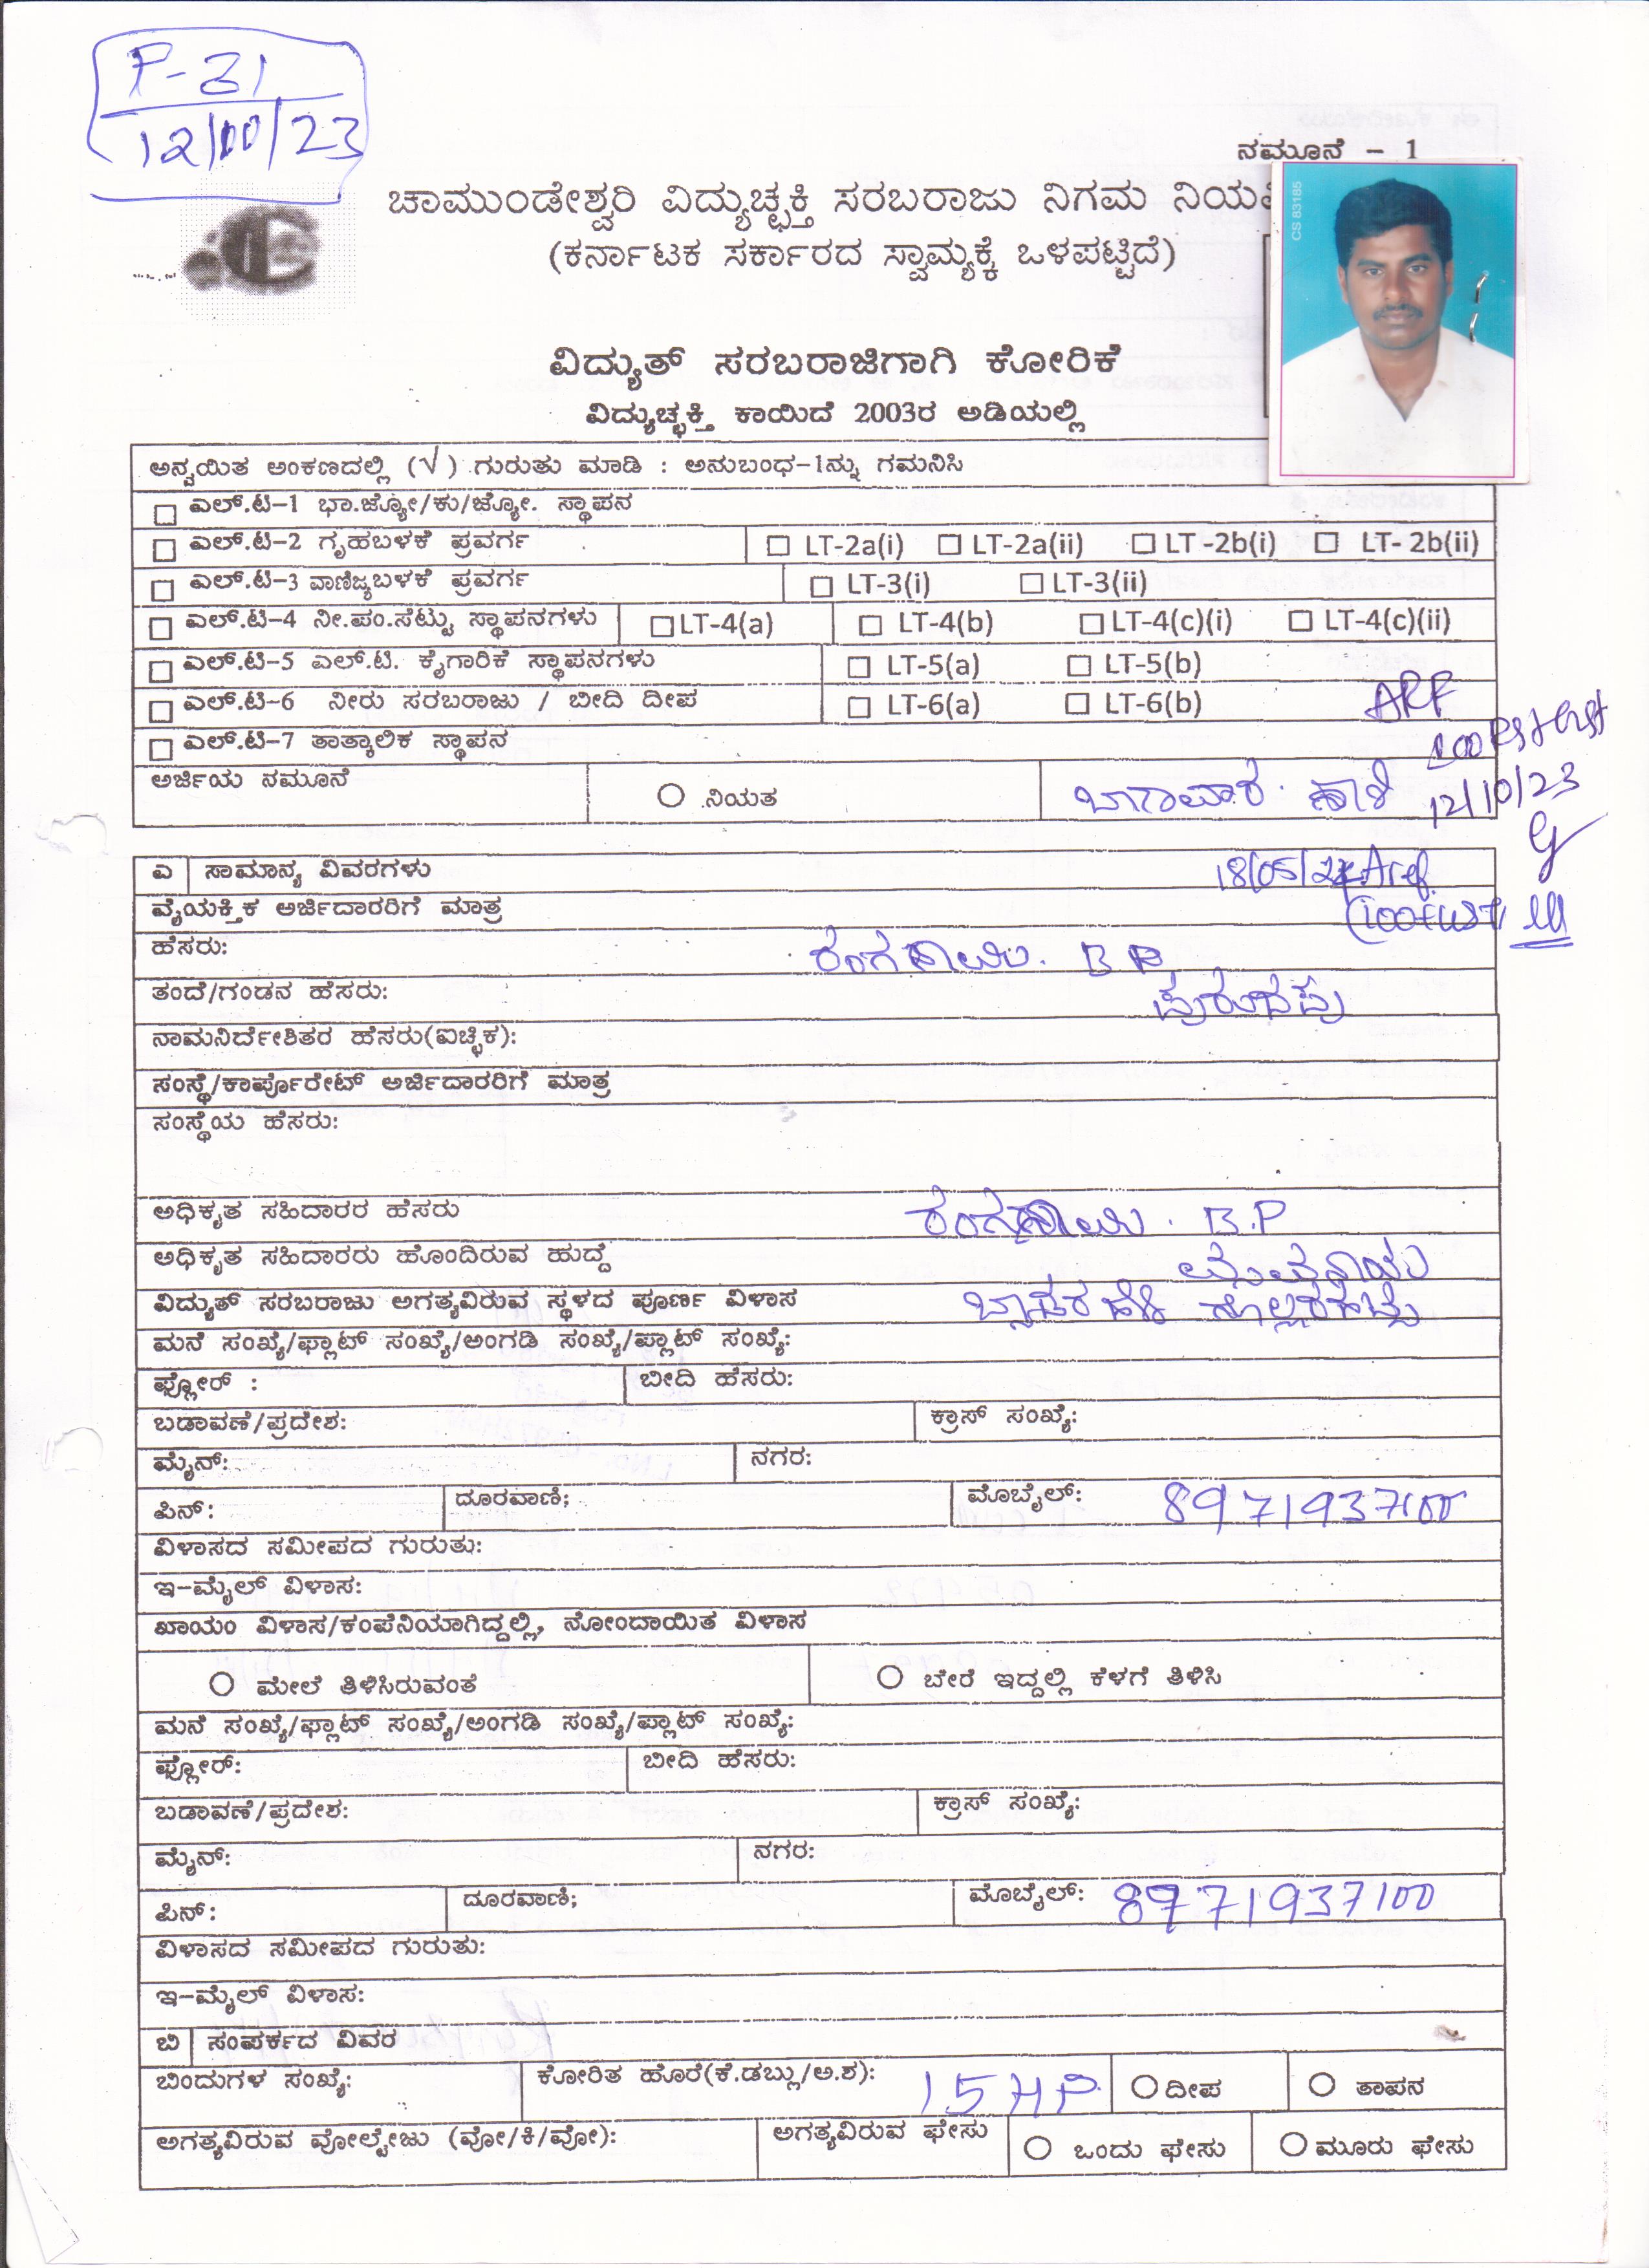 P-31
12/10/23
ನಮೂನೆ - 1
CS 83185
ಚಾಮುಂಡೇಶ್ವರಿ ವಿದ್ಯುಚ್ಛಕ್ತಿ ಸರಬರಾಜು ನಿಗಮ
(ಕರ್ನಾಟಕ ಸರ್ಕಾರದ ಸ್ವಾಮ್ಯಕ್ಕೆ ಒಳಪಟ್ಟಿದೆ)
ವಿದ್ಯುತ್ ಸರಬರಾಜಿಗಾಗಿ ಕೋರಿಕೆ
ವಿದ್ಯುಚ್ಛಕ್ತಿ ಕಾಯಿದೆ 2003ರ ಅಡಿಯಲ್ಲಿ
ಅನ್ವಯಿತ ಅಂಕಣದಲ್ಲಿ (√) ಗುರುತು ಮಾಡಿ : ಅನುಬಂಧ-1ನ್ನು ಗಮನಿಸಿ
ಎಲ್.ಟಿ-1 ಭಾ.ಜ್ಯೋ/ಕು/ಜ್ಯೋ. ಸ್ಥಾಪನ
ಎಲ್.ಟಿ-2 ಗೃಹಬಳಕೆ ಪ್ರವರ್ಗ LT-2a(i) LT-2a(ii) LT -2b(i) LT- 2b(ii)
ಎಲ್.ಟಿ-3 ವಾಣಿಜ್ಯಬಳಕೆ ಪ್ರವರ್ಗ LT-3(i) LT-3(ii)
ಎಲ್.ಟಿ-4 ನೀ.ಪಂ.ಸೆಟ್ಟು ಸ್ಥಾಪನಗಳು LT-4(a) LT-4(b) LT-4(c)(i) LT-4(c)(ii)
ಎಲ್.ಟಿ-5 ಎಲ್.ಟಿ. ಕೈಗಾರಿಕೆ ಸ್ಥಾಪನಗಳು LT-5(a) LT-5(b)
ಎಲ್.ಟಿ-6 ನೀರು ಸರಬರಾಜು / ಬೀದಿ ದೀಪ LT-6(a) LT-6(b)
ಎಲ್.ಟಿ-7 ತಾತ್ಕಾಲಿಕ ಸ್ಥಾಪನ
ಅರ್ಜಿಯ ನಮೂನೆ ನಿಯತ
12/10/23
ಎ ಸಾಮಾನ್ಯ ವಿವರಗಳು
ವೈಯಕ್ತಿಕ ಅರ್ಜಿದಾರರಿಗೆ ಮಾತ್ರ
ಹೆಸರು: ರಂಗಸ್ವಾಮಿ. B P
ತಂದೆ/ಗಂಡನ ಹೆಸರು:
ನಾಮನಿರ್ದೇಶಿತರ ಹೆಸರು(ಐಚ್ಛಿಕ):
ಸಂಸ್ಥೆ/ಕಾರ್ಪೊರೇಟ್ ಅರ್ಜಿದಾರರಿಗೆ ಮಾತ್ರ
ಸಂಸ್ಥೆಯ ಹೆಸರು:
ಅಧಿಕೃತ ಸಹಿದಾರರ ಹೆಸರು ರಂಗಸ್ವಾಮಿ. B.P
ಅಧಿಕೃತ ಸಹಿದಾರರು ಹೊಂದಿರುವ ಹುದ್ದೆ
ವಿದ್ಯುತ್ ಸರಬರಾಜು ಅಗತ್ಯವಿರುವ ಸ್ಥಳದ ಪೂರ್ಣ ವಿಳಾಸ ಗೊಲ್ಲರಹಟ್ಟಿ
ಮನೆ ಸಂಖ್ಯೆ/ಫ್ಲಾಟ್ ಸಂಖ್ಯೆ/ಅಂಗಡಿ ಸಂಖ್ಯೆ/ಪ್ಲಾಟ್ ಸಂಖ್ಯೆ:
ಫ್ಲೋರ್ : ಬೀದಿ ಹೆಸರು:
ಬಡಾವಣೆ/ಪ್ರದೇಶ: ಕ್ರಾಸ್ ಸಂಖ್ಯೆ:
ಮೈನ್: ನಗರ:
ಪಿನ್: ದೂರವಾಣಿ; ಮೊಬೈಲ್: 8971937100
ವಿಳಾಸದ ಸಮೀಪದ ಗುರುತು:
ಇ-ಮೈಲ್ ವಿಳಾಸ:
ಖಾಯಂ ವಿಳಾಸ/ಕಂಪೆನಿಯಾಗಿದ್ದಲ್ಲಿ, ನೋಂದಾಯಿತ ವಿಳಾಸ
ಮೇಲೆ ತಿಳಿಸಿರುವಂತೆ ಬೇರೆ ಇದ್ದಲ್ಲಿ ಕೆಳಗೆ ತಿಳಿಸಿ
ಮನೆ ಸಂಖ್ಯೆ/ಫ್ಲಾಟ್ ಸಂಖ್ಯೆ/ಅಂಗಡಿ ಸಂಖ್ಯೆ/ಪ್ಲಾಟ್ ಸಂಖ್ಯೆ:
ಫ್ಲೋರ್: ಬೀದಿ ಹೆಸರು:
ಬಡಾವಣೆ/ಪ್ರದೇಶ: ಕ್ರಾಸ್ ಸಂಖ್ಯೆ:
ಮೈನ್: ನಗರ:
ಪಿನ್: ದೂರವಾಣಿ; ಮೊಬೈಲ್: 8971937100
ವಿಳಾಸದ ಸಮೀಪದ ಗುರುತು:
ಇ-ಮೈಲ್ ವಿಳಾಸ:
ಬಿ ಸಂಪರ್ಕದ ವಿವರ
ಬಿಂದುಗಳ ಸಂಖ್ಯೆ: ಕೋರಿತ ಹೊರೆ(ಕೆ.ಡಬ್ಲು/ಅ.ಶ): 15 HP ದೀಪ ತಾಪನ
ಅಗತ್ಯವಿರುವ ವೋಲ್ಟೇಜು (ವೋ/ಕಿ/ವೋ): ಅಗತ್ಯವಿರುವ ಫೇಸು ಒಂದು ಫೇಸು ಮೂರು ಫೇಸು